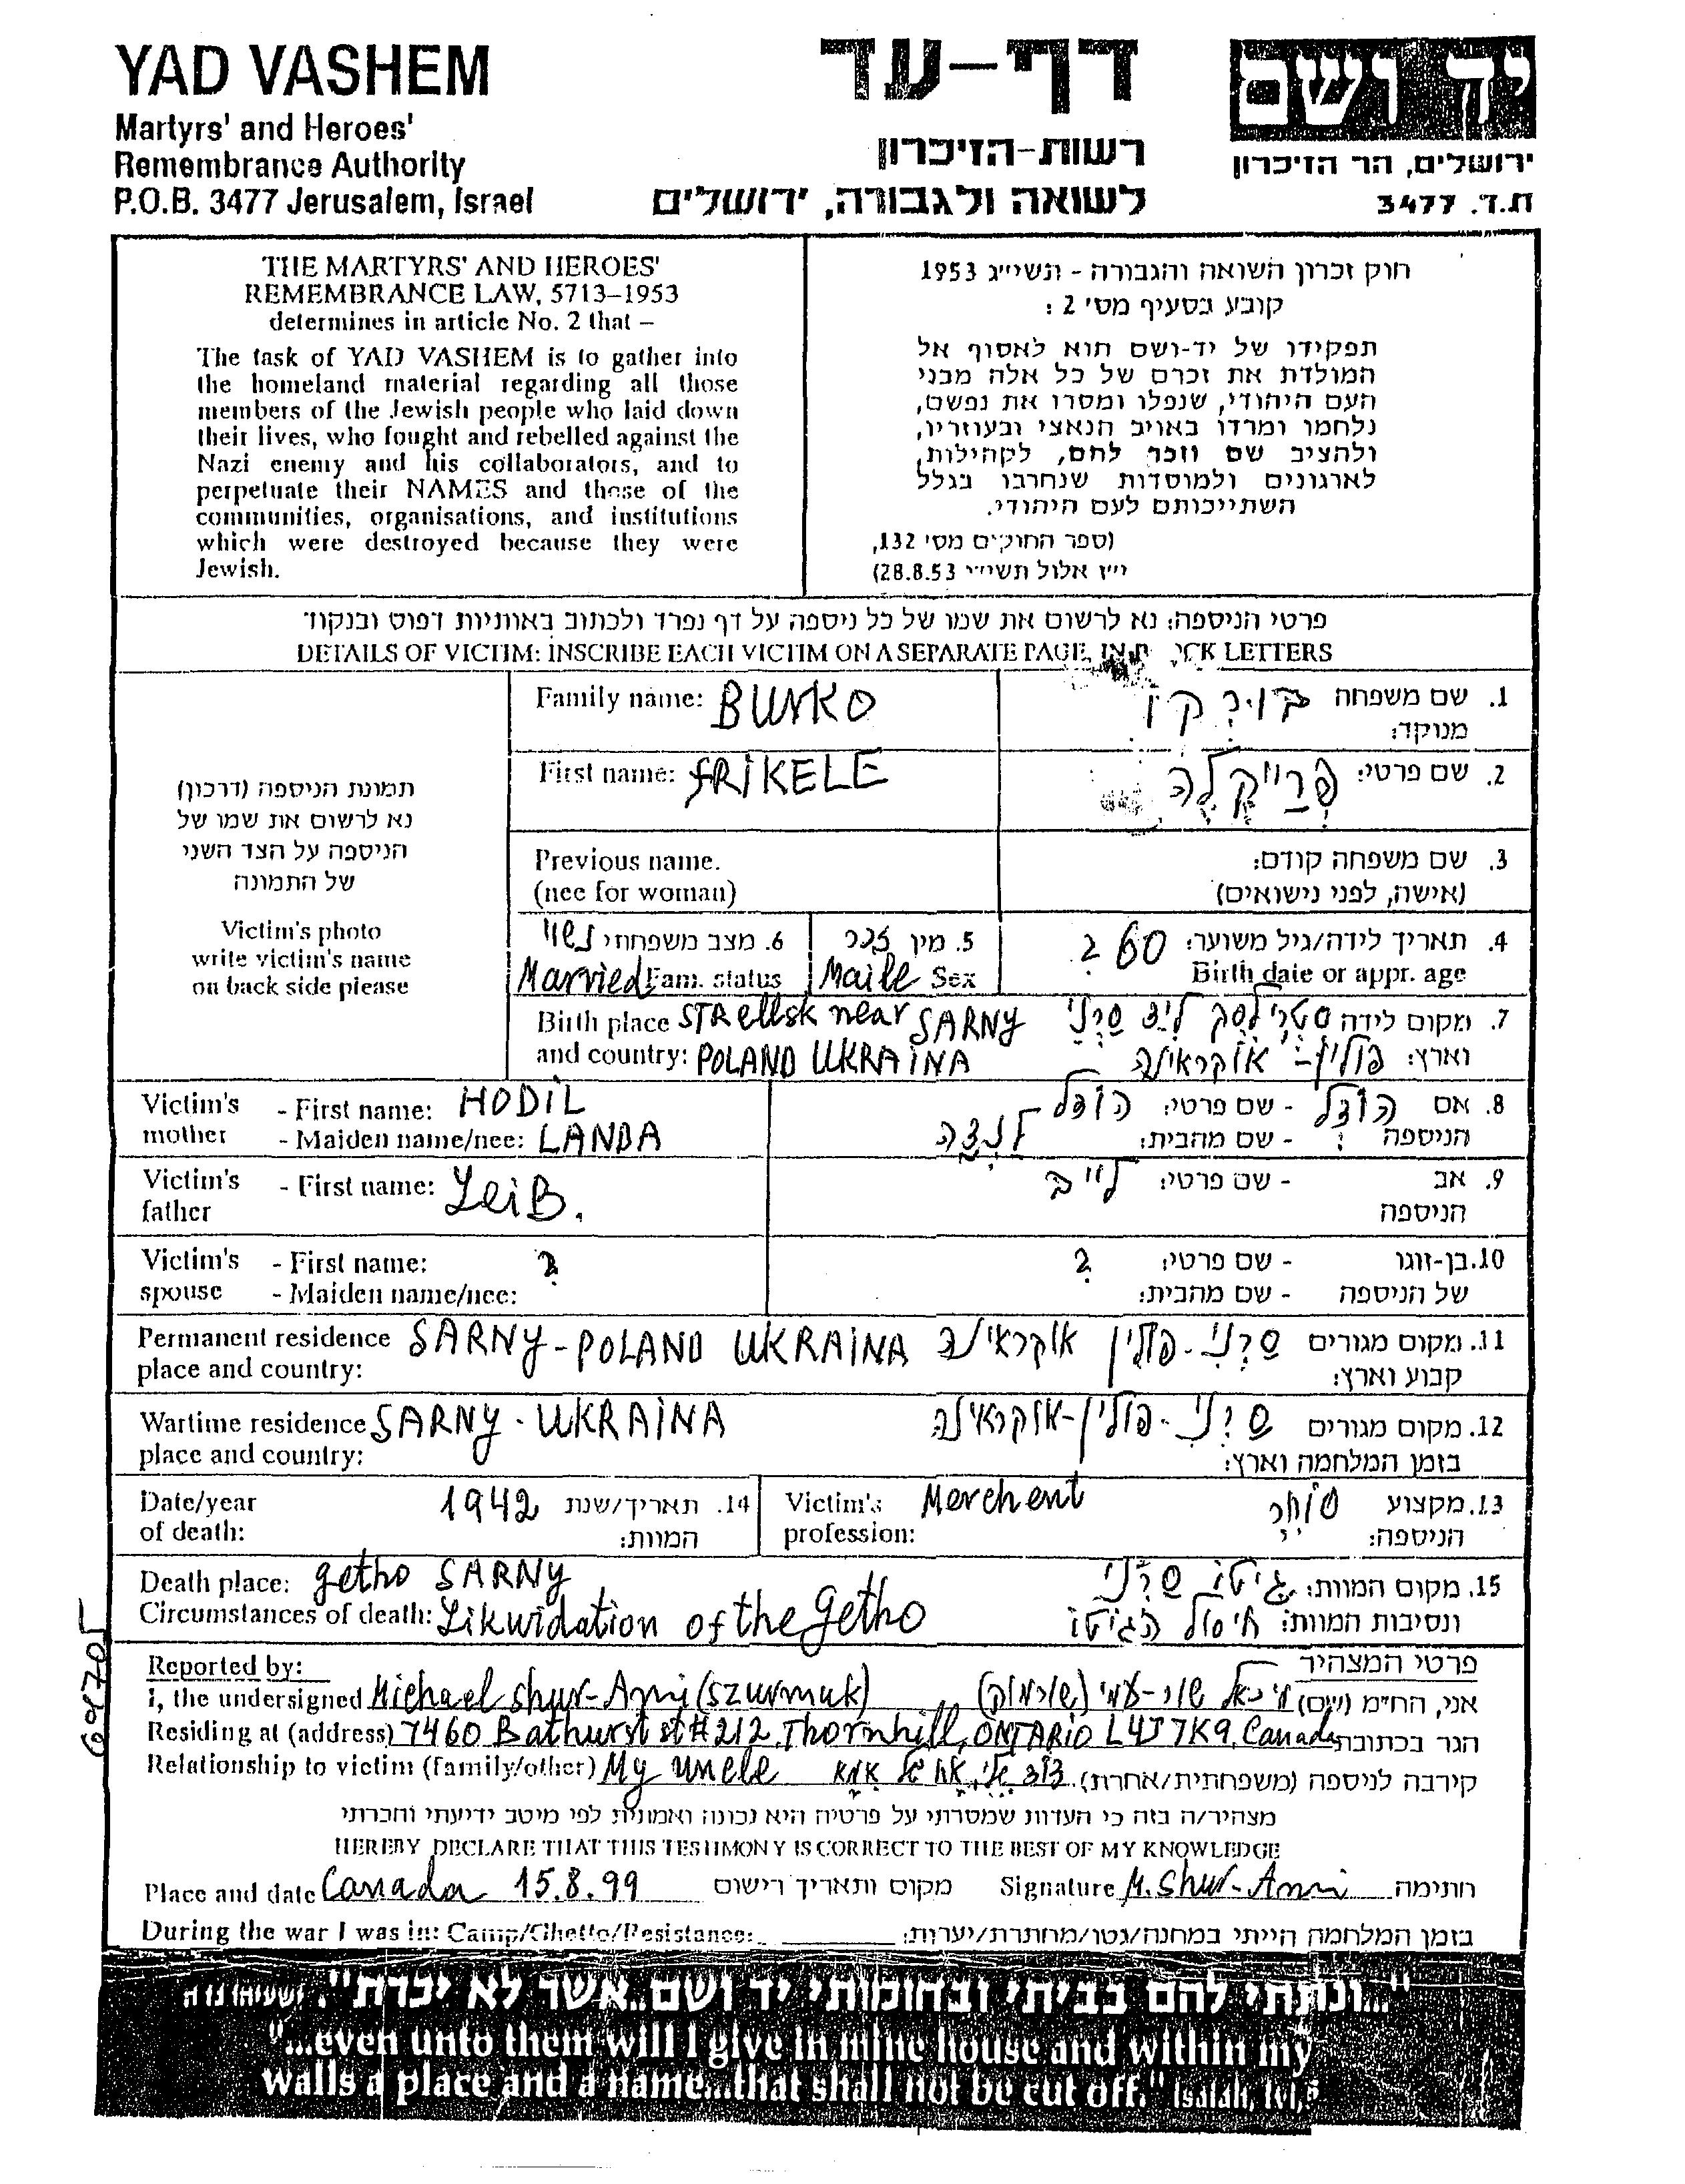 YAD VASHEM
Martyrs' and Heroes'
Remembrance Authority
P.O.B. 3477 Jerusalem, Israel
דף-עד
רשות-הזיכרון
לשואה ולגבורה, ירושלים
יד ושם
ירושלים, הר הזיכרון
ת.ד. 3477
THE MARTYRS' AND HEROES'
REMEMBRANCE LAW, 5713–1953
determines in article No. 2 that –
The task of YAD VASHEM is to gather into
the homeland material regarding all those
members of the Jewish people who laid down
their lives, who fought and rebelled against the
Nazi enemy and his collaborators, and to
perpetuate their NAMES and those of the
communities, organisations, and institutions
which were destroyed because they were
Jewish.
חוק זכרון השואה והגבורה - תשי"ג 1953
קובע בסעיף מס' 2:
תפקידו של יד-ושם הוא לאסוף אל
המולדת את זכרם של כל אלה מבני
העם היהודי, שנפלו ומסרו את נפשם,
נלחמו ומרדו באויב הנאצי ובעוזריו,
ולהציב שם וזכר להם, לקהילות,
לארגונים ולמוסדות שנחרבו בגלל
השתייכותם לעם היהודי.
(ספר החוקים מס' 132,
י"ז אלול תשי"ג 28.8.53)
פרטי הניספה: נא לרשום את שמו של כל ניספה על דף נפרד ולכתוב באותיות דפוס ובנקוד
DETAILS OF VICTIM: INSCRIBE EACH VICTIM ON A SEPARATE PAGE, IN LETTERS
תמונת הניספה (דרכון)
נא לרשום את שמו של
הניספה על הצד השני
של התמונה
Victim's photo
write victim's name
on back side please
Family name: BURKO בורקו 1. שם משפחה
מנוקד:
First name: fRIKELE פרייקלה 2. שם פרטי:
Previous name. 3. שם משפחה קודם:
(nee for woman) (אישה, לפני נישואים)
6. מצב משפחתי נשוי 5. מין זכר 4. תאריך לידה/גיל משוער: 60 ?
Married Fam. status Maile Sex Birth date or appr. age
Birth place STRellsk near SARNY 7. מקום לידה סטרלסק ליד סרני
and country: POLAND UKRAiNA וארץ: פולין- אוקראינה
Victim's - First name: HODiL 8. אם הודל - שם פרטי: הודל
mother - Maiden name/nee: LANDA הניספה - שם מהבית: לנדה
Victim's - First name: LeiB. 9. אב - שם פרטי: לייב
father הניספה
Victim's - First name: ? 10. בן-זוגו - שם פרטי: ?
spouse - Maiden name/nee: של הניספה - שם מהבית:
Permanent residence SARNY-POLAND UKRAiNA 11. מקום מגורים סרני-פולין אוקראינה
place and country: קבוע וארץ:
Wartime residence SARNY - UKRAiNA 12. מקום מגורים סרני-פולין-אוקראינה
place and country: בזמן המלחמה וארץ:
Date/year 1942 14. תאריך/שנת Victim's Merchent 13. מקצוע סוחר
of death: המוות: profession: הניספה:
Death place: getho SARNY 15. מקום המוות: גיטו סרני
Circumstances of death: Likwidation of the getho ונסיבות המוות: חיסול הגיטו
69705
Reported by: פרטי המצהיר
I, the undersigned Michael Shur-Ami (Szurmuk) אני, הח"מ (שם) מיכאל שור-עמי (שורמוק)
Residing at (address) 7460 Bathurst st #212, Thornhill, ONTARiO L4J 7K9, Canada הגר בכתובת
Relationship to victim (family/other) My uncle קירבה לניספה (משפחתית/אחרת) דוד שלי, אח של אמא
מצהיר/ה בזה כי העדות שמסרתי על פרטיה היא נכונה ואמיתית לפי מיטב ידיעתי והכרתי
HEREBY DECLARE THAT THIS TESTIMONY IS CORRECT TO THE BEST OF MY KNOWLEDGE
Place and date Canada 15.8.99 מקום ותאריך רישום Signature M. Shur-Ami חתימה
During the war I was in: Camp/Ghetto/Resistance: בזמן המלחמה הייתי במחנה/גטו/מחתרת/יערות:
"...ונתתי להם בביתי ובחומותי יד ושם..אשר לא יכרת".
"...even unto them will I give in mine house and within my
walls a place and a name...that shall not be cut off." Isaiah, lvi,5